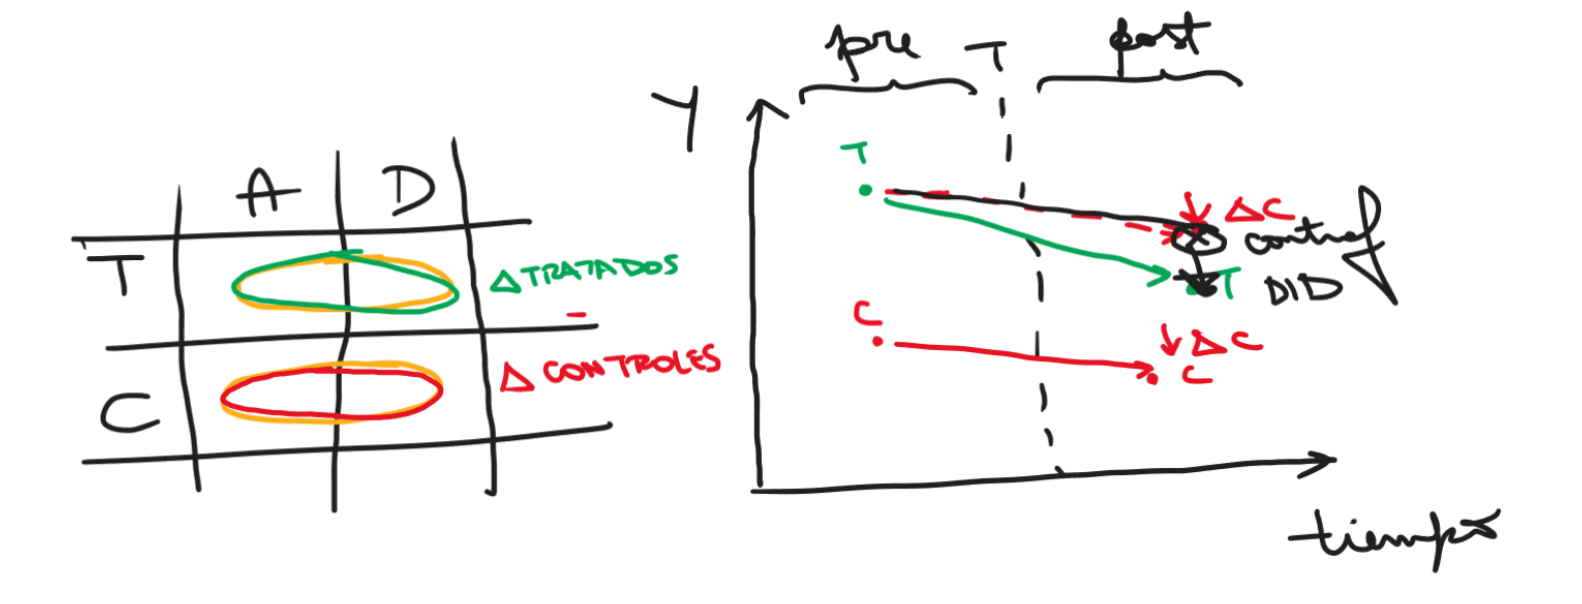 A D
T
Δ TRATADOS
-
C
Δ CONTROLES
pre T post
Y
T
ΔC
contraf
T DID
C
ΔC
C
tiempo